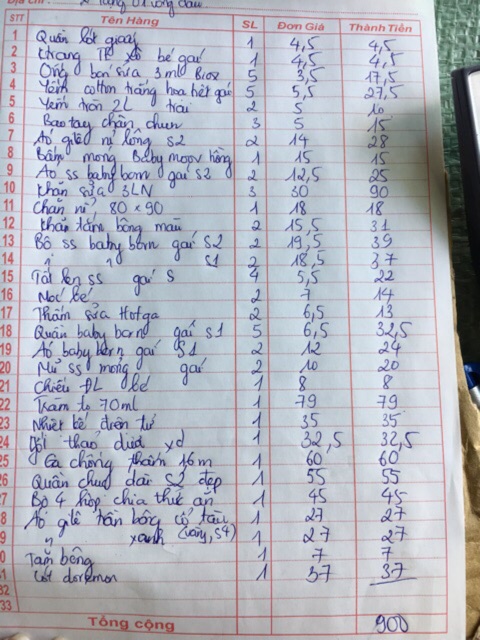 STT Tên Hàng SL Đơn Giá Thành Tiền
1 Quần lót giấy 1 4,5 4,5
2 Khăn xô bé gái 1 4,5 4,5
3 Ống bơm sữa 3ml 5 3,5 17,5
4 Yếm cotton trắng hoa gái 5 5,5 27,5
5 Yếm tròn 2L trái 2 5 10
6 Bao tay chân chun 3 5 15
7 Áo gilê nỉ lông S2 2 14 28
8 Bông mong Baby moov hồng 1 15 15
9 Áo ss baby born gái S2 2 12,5 25
10 Khăn sữa 3LN 3 30 90
11 Chăn nỉ 80×90 1 18 18
12 Khăn tắm bông màu 2 15,5 31
13 Bộ ss baby born gái S2 2 19,5 39
14 " " S1 2 18,5 37
15 Tất len ss gái S 4 5,5 22
16 bé 2 7 14
17 Thấm sữa 2 6,5 13
18 Quần baby born gái S1 5 6,5 32,5
19 Áo baby born gái S1 2 12 24
20 Mũ ss mong gái 2 10 20
21 Chiếu ĐL bé 1 8 8
22 70ml 1 79 79
23 Nhiệt kế điện tử 1 35 35
24 thảo dược 1 32,5 32,5
25 Ga chống thấm 1,6m 1 60 60
26 Quần chục dài S2 đẹp 1 55 55
27 Bộ 4 hộp chia thức ăn 1 45 45
8 Áo gilê trần bông cổ tàu 1 27 27
9 " xanh S4) 1 27 27
0 Tăm bông 1 7 7
1 doremon 1 37 37
32
33
Tổng cộng 900